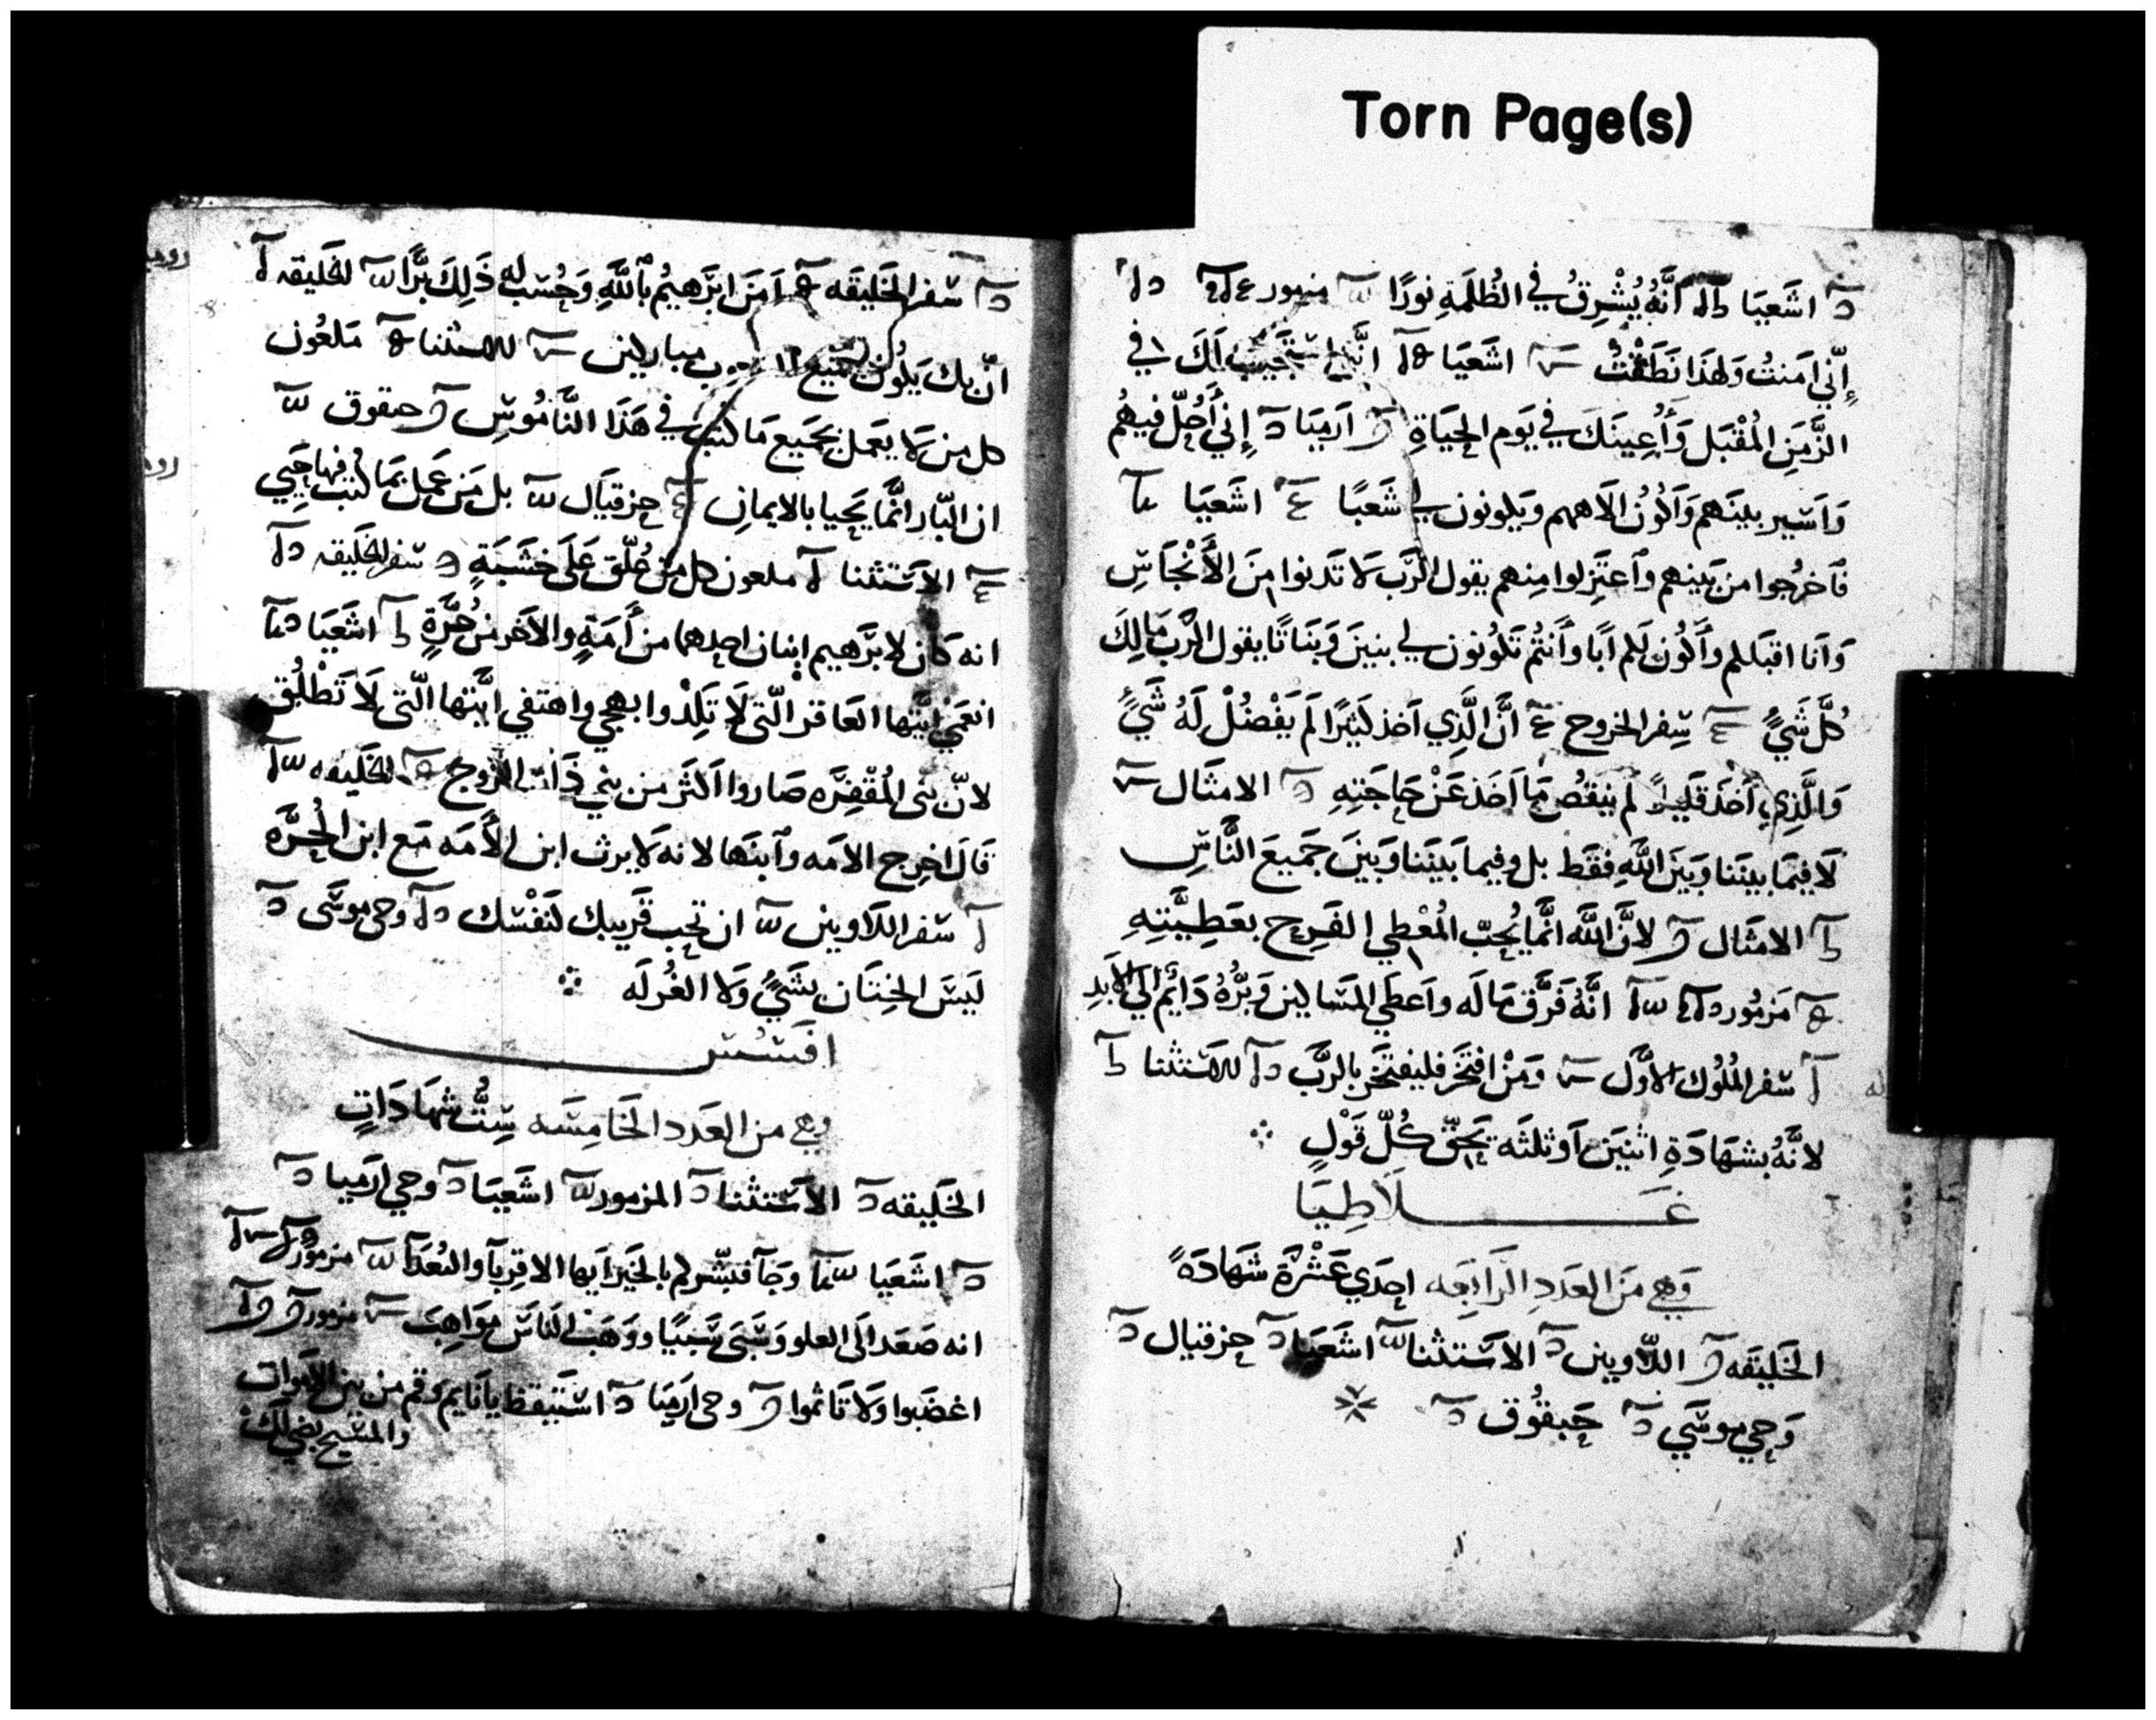 Torn Page(s)
اشَعيَا أنَّهُ يُشْرِقُ في الظُلمَةِ نورًا مزمور
إنّي امَنتُ وَلهَذا نَطَقْتُ اشَعيَا انّي استَجَيبُ لَكَ في
الزَّمَنِ المُقْبَل وَأُعِينَكَ في يَوم الحيَاةِ ارَميَا إني أَحُلّ فيهُم
وَاَسير بينَهم وَاَكُونُ الاههم ويكونون لي شَعبًا اشَعيَا
فَاخرُجوا من بَينهم واعتَزِلوا مِنهم يقول الرَّب لَا تَدنوا مِنَ الأَنْجَاسِ
وَانَا اقبَلكم وأَكُون لكم ابًا وأَنتُم تَكُونون لي بنينَ وَبَنَاتًا يقول الرَّب مَالِكَ
كُلَّ شَيٍّ سِفر الخروج انَّ الَّذِي اَخذ كثيرًا لَم يَفْضُلْ لَهُ شَيٌ
وَالَّذِي أخَذ قَليلاً لم ينقُص مَا اَخَذ عَنْ حَاجَتِهِ الامثَال
لَا فِيمَا بينَنا وَبَينَ اللَّهِ فقَط بل وفيما بَينَنا وَبينَ جَميعَ النَّاسِ
الامثَال لانَّ اللَّه انَّمَا يُحِبّ المُعْطي الفَرِح بعَطِيَّتِهِ
مَزمُور انَّهُ فَرَّق مَا لَه واَعطَي المسَاكين وَبرُّهُ دَائم الي الابَدِ
سَفر المُلوُك الاوَّل ومَنْ افتَخَر فليفتَخَر بالرَّب للاسَتثنا
لانَّهُ بشهَادَةِ اثنَينَ اَو ثلثَه يَحِقّ كُلّ قَولٍ
غَلَاطِيَا
وَهي مَن العَددِ الرَابعَه احِدَي عَشْرَة شَهادَةً
الخَلِيقَه اللّاويين الاسَتثنا اشَعَيا حزقيال
وَحي موسَي حَبقُوق
سَفر الخَليقَه امَنَ ابَرهيُم باللَّهِ وَحُسب له ذَلِكَ بَرًّا لخليقه
انّ بك يَكُون جميع مباركين للاستثنا مَلعُون
كل من لَا يعَمل بجَميَع مَا كتب في هَذَا النَّامُوسِ حبقوق
ان البّار انَّما يَحيا بالايمانِ حزقيَال بل مَن عَمل بمَا كُتب فيها حَيي
الاسَتثنا ملعون كل من عُلّق عَلَى خشَبَةٍ سَفر الخَليقه
انه كَان لابَرهيم ابنان احِدهما من أَمَةٍ والاخَر من حُرَّةٍ اشَعَيَا
انعَمي ايَّتها العَاقر الّتي لَا تَلِدْ وابهجي واهتفي ايَّتها الّتي لَا تَطْلُق
لانّ بَني المُقْفِرَه صَاروا اكثَر من بني ذَات الزوج الخَليقه
قَالَ اخِرج الامَه وابنَها لانه لَا يرث ابن الأَمَه مَع ابن الحُرَّه
سَفر اللَاويين ان تحِب قَريبك لنَفْسَك وحي موسَى
لَيسَ الخِتَان بشَيٍّ وَلا الغُرلَه
افَسُس
وهي من العَدد الخَامِسَه سِتُّ شهَادَاتٍ
الخَليقه الاسَتثنا المزمور اشَعيَا وحي ارَميا
اشَعيا وجَآ فبشّركم بالخيَر ايها الاقربآ والبُعَدآ مزمور
انه صَعَد الَى العلو وسَبَى سَبيًا ووَهَبَ للنَاسَ موَاهِبَ مزمور
اغضَبوا وَلَا تَاثموا وحي ارَميَا اسَتَيقظ يا نَايم وَقم من بين الاَموات
والمسَيح يضي لَكَ